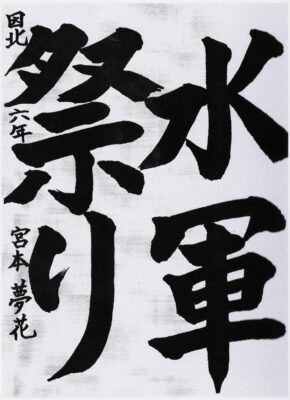 水軍
祭り
因北 六年 宮本 夢花